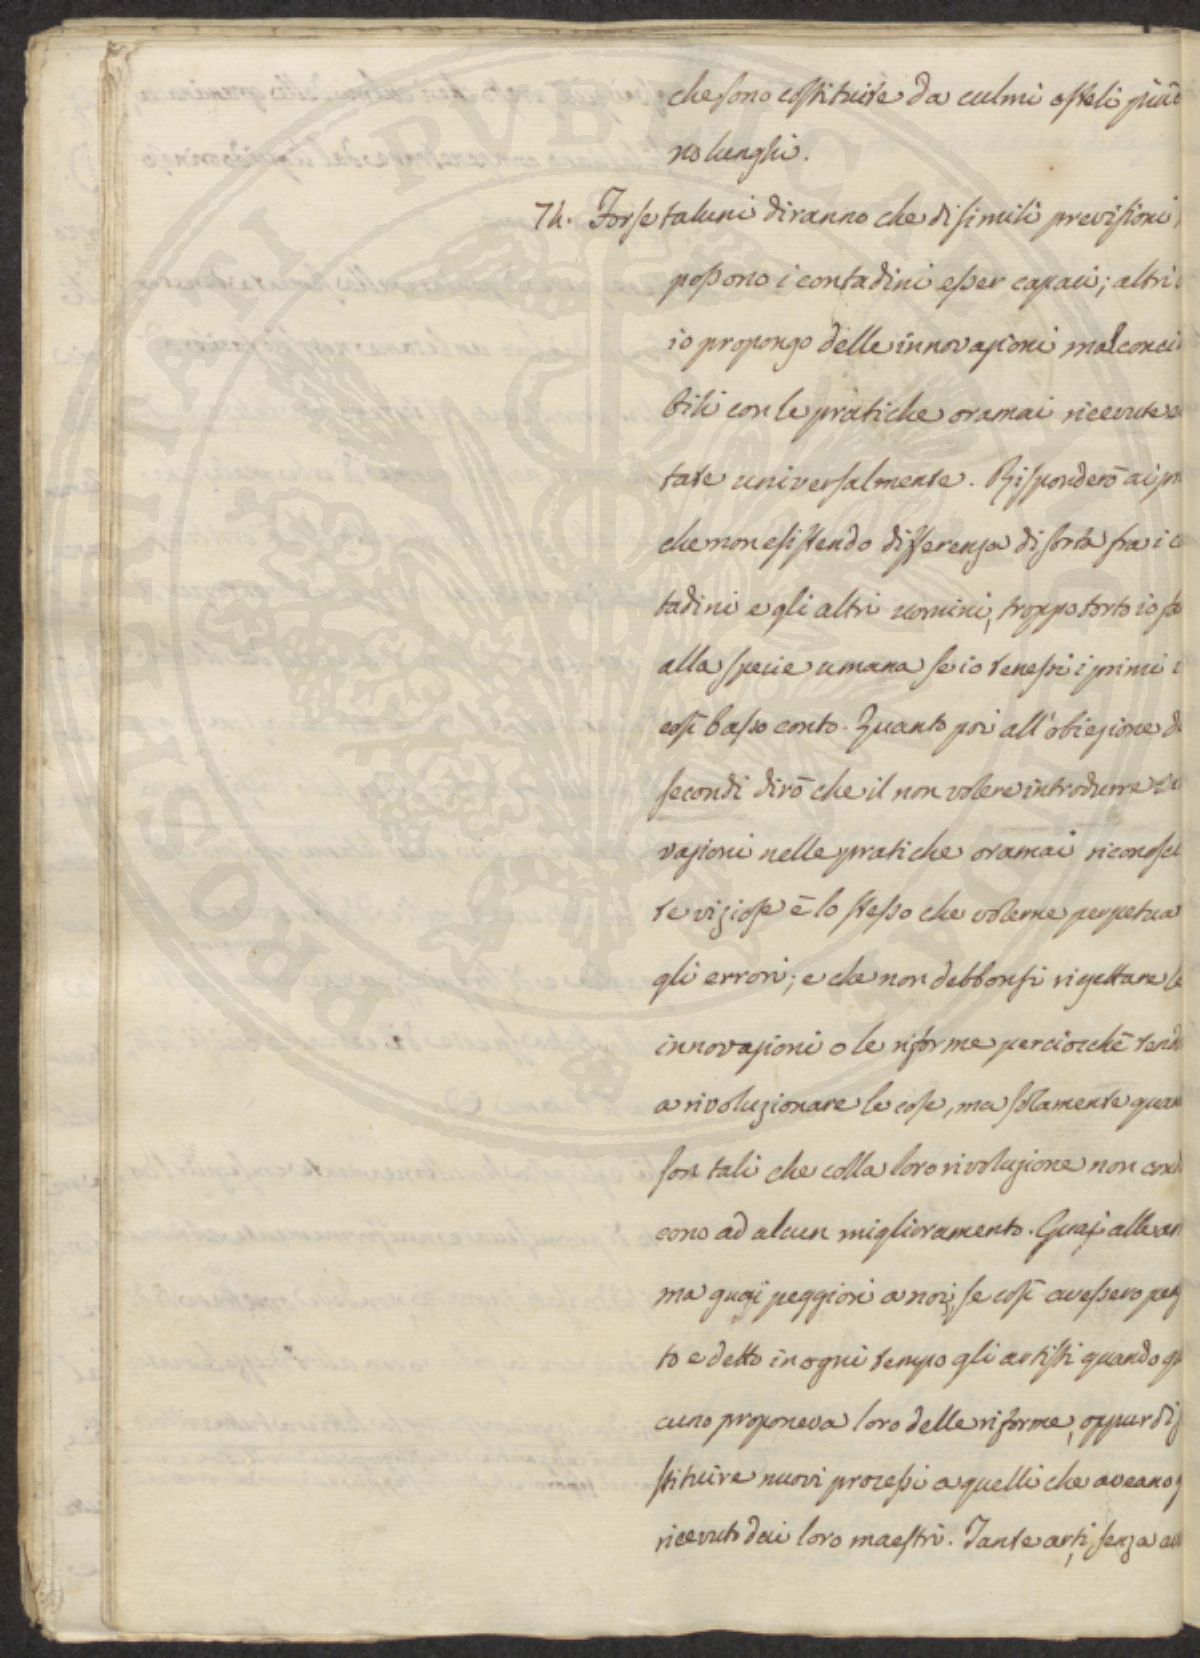 che sono costituite da culmi osteli più o
no lunghi.
74. Forse taluni diranno che di simili previsioni
possono i contadini esser capaci; altri
io propongo delle innovazioni mal conci
bili con le pratiche oramai ricevute
tate universalmente. Risponderò ai pri
che non esistendo differenza di sorta fra i co
tadini e gli altri uomini, troppo torto io fa
alla specie umana se io tenessi i primi
così basso conto. Quanto poi all'obiezione d
secondi dirò che il non volere introdurre
vazioni nelle pratiche oramai riconosciu
te viziose è lo stesso che volerne perpetua
gli errori; e che non debbonsi rigettare le
innovazioni o le riforme perciocchè tend
a rivoluzionare le cose, ma solamente quan
son tali che colla loro rivoluzione non cond
cono ad alcun miglioramento. Guai alle ar
ma guai peggiori a noi, se così avessero pen
to e detto in ogni tempo gli artisti quando qu
cuno proponeva loro delle riforme, oppur di
stituire nuovi processi a quelli che aveano
ricevuto dai loro maestri. Tante arti, senza
POSTERITATI PVBLICAE